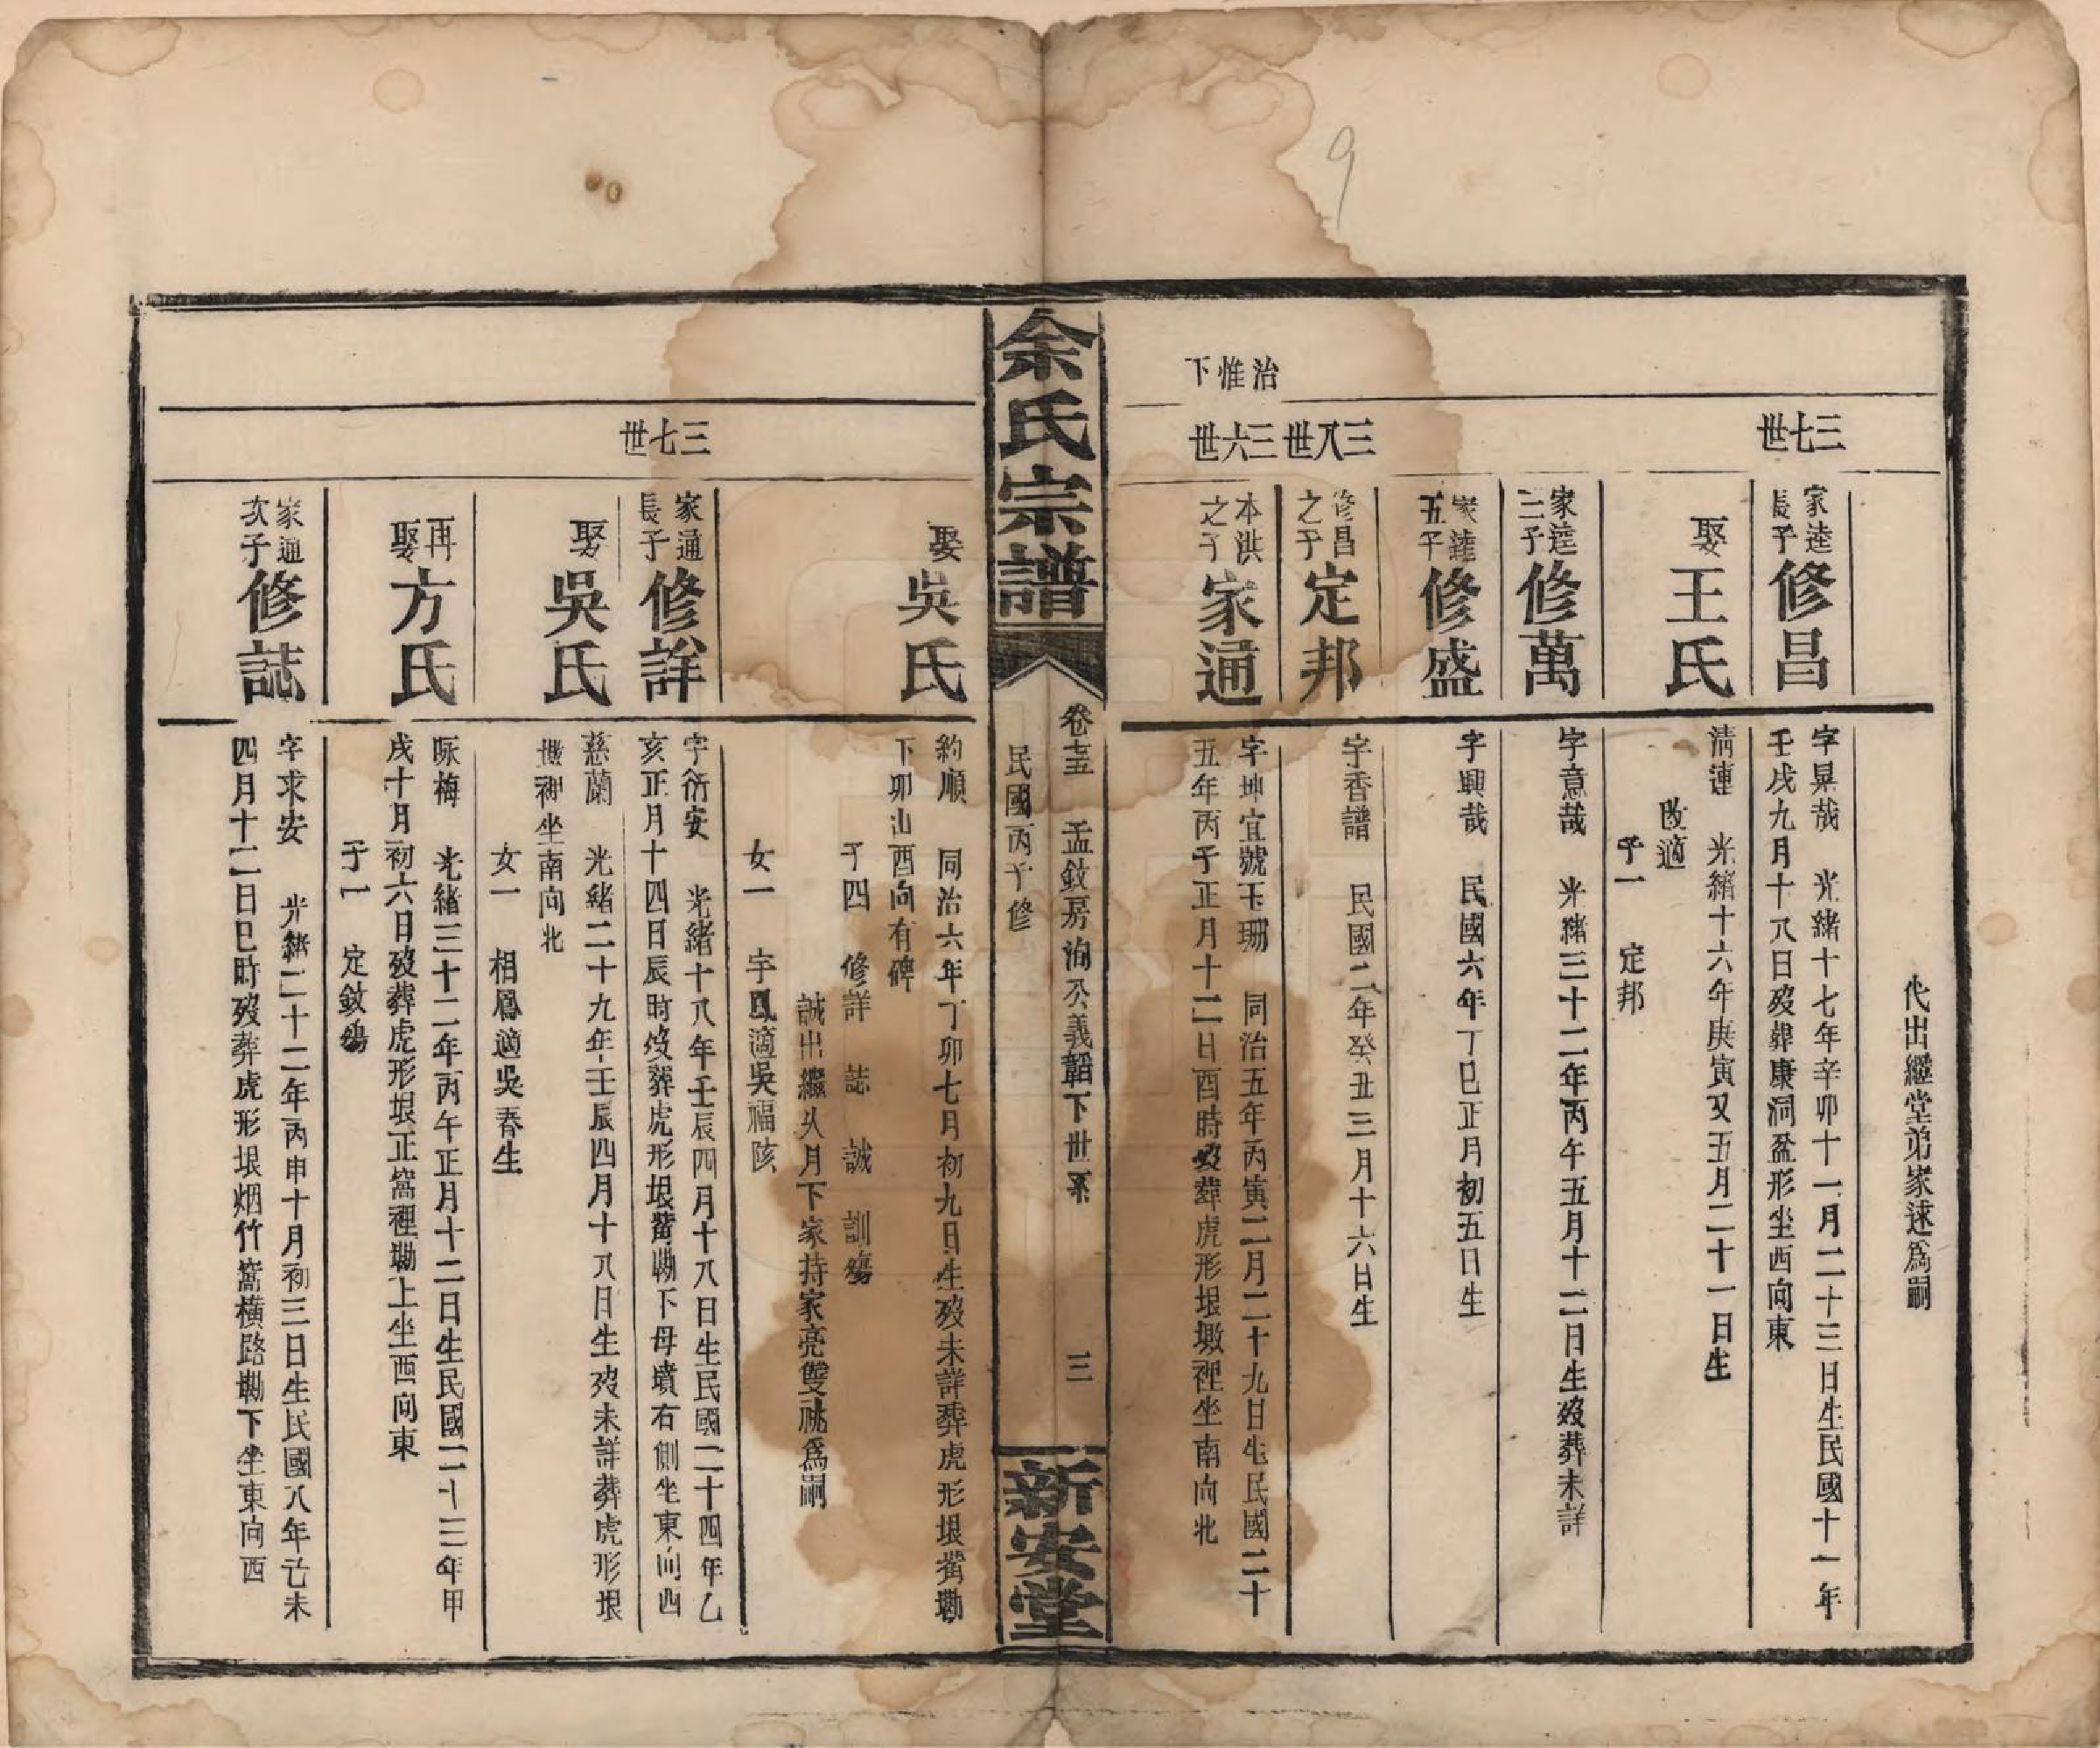 代出繼堂弟家逑爲嗣
三七世
家逵長子
修昌
字昇哉 光緒十七年辛卯十一月二十三日生民國十一年
壬戌九月十八日歿葬康洞盆形坐西向東
娶
王氏
清蓮 光緒十六年庚寅又五月二十一日生
改適
子一 定邦
家逵三子
修萬
字意哉 光緒三十二年丙午五月十二日生歿葬未詳
家逵五子
修盛
字興哉 民國六年丁巳正月初五日生
三八世
修昌之子
定邦
字香譜 民國二年癸丑三月十六日生
治惟下
三六世
本洪之子
家通
字坤宜號玉珊 同治五年丙寅二月二十九日生民國二十
五年丙子正月十二日酉時歿葬虎形垠墩裡坐南向北
余氏宗譜
卷十五 孟鈙房洵公義韜下世系 三
民國丙子修
新安堂
娶
吳氏
約順 同治六年丁卯七月初九日生歿未詳葬虎形垠嘴墈
下卯山酉向有碑
子四 修詳 誌 誠 訓殤
誠出繼從月下家持家亮雙祧爲嗣
女一 字鳳適吳福陔
三七世
家通長子
修詳
字衍安 光緒十八年壬辰四月十八日生民國二十四年乙
亥正月十四日辰時歿葬虎形垠嘴墈下母墳右側坐東向西
娶
吳氏
慈蘭 光緒二十九年壬辰四月十八日生歿未詳葬虎形垠
坐南向北
女一 相鳳適吳春生
再娶
方氏
咏梅 光緒三十二年丙午正月十二日生民國二十三年甲
戌十月初六日歿葬虎形垠正窩裡墈上坐西向東
子一 定鈙殤
家通次子
修誌
字求安 光緒二十二年丙申十月初三日生民國八年己未
四月十二日巳時歿葬虎形垠烟竹窩橫路墈下坐東向西
9